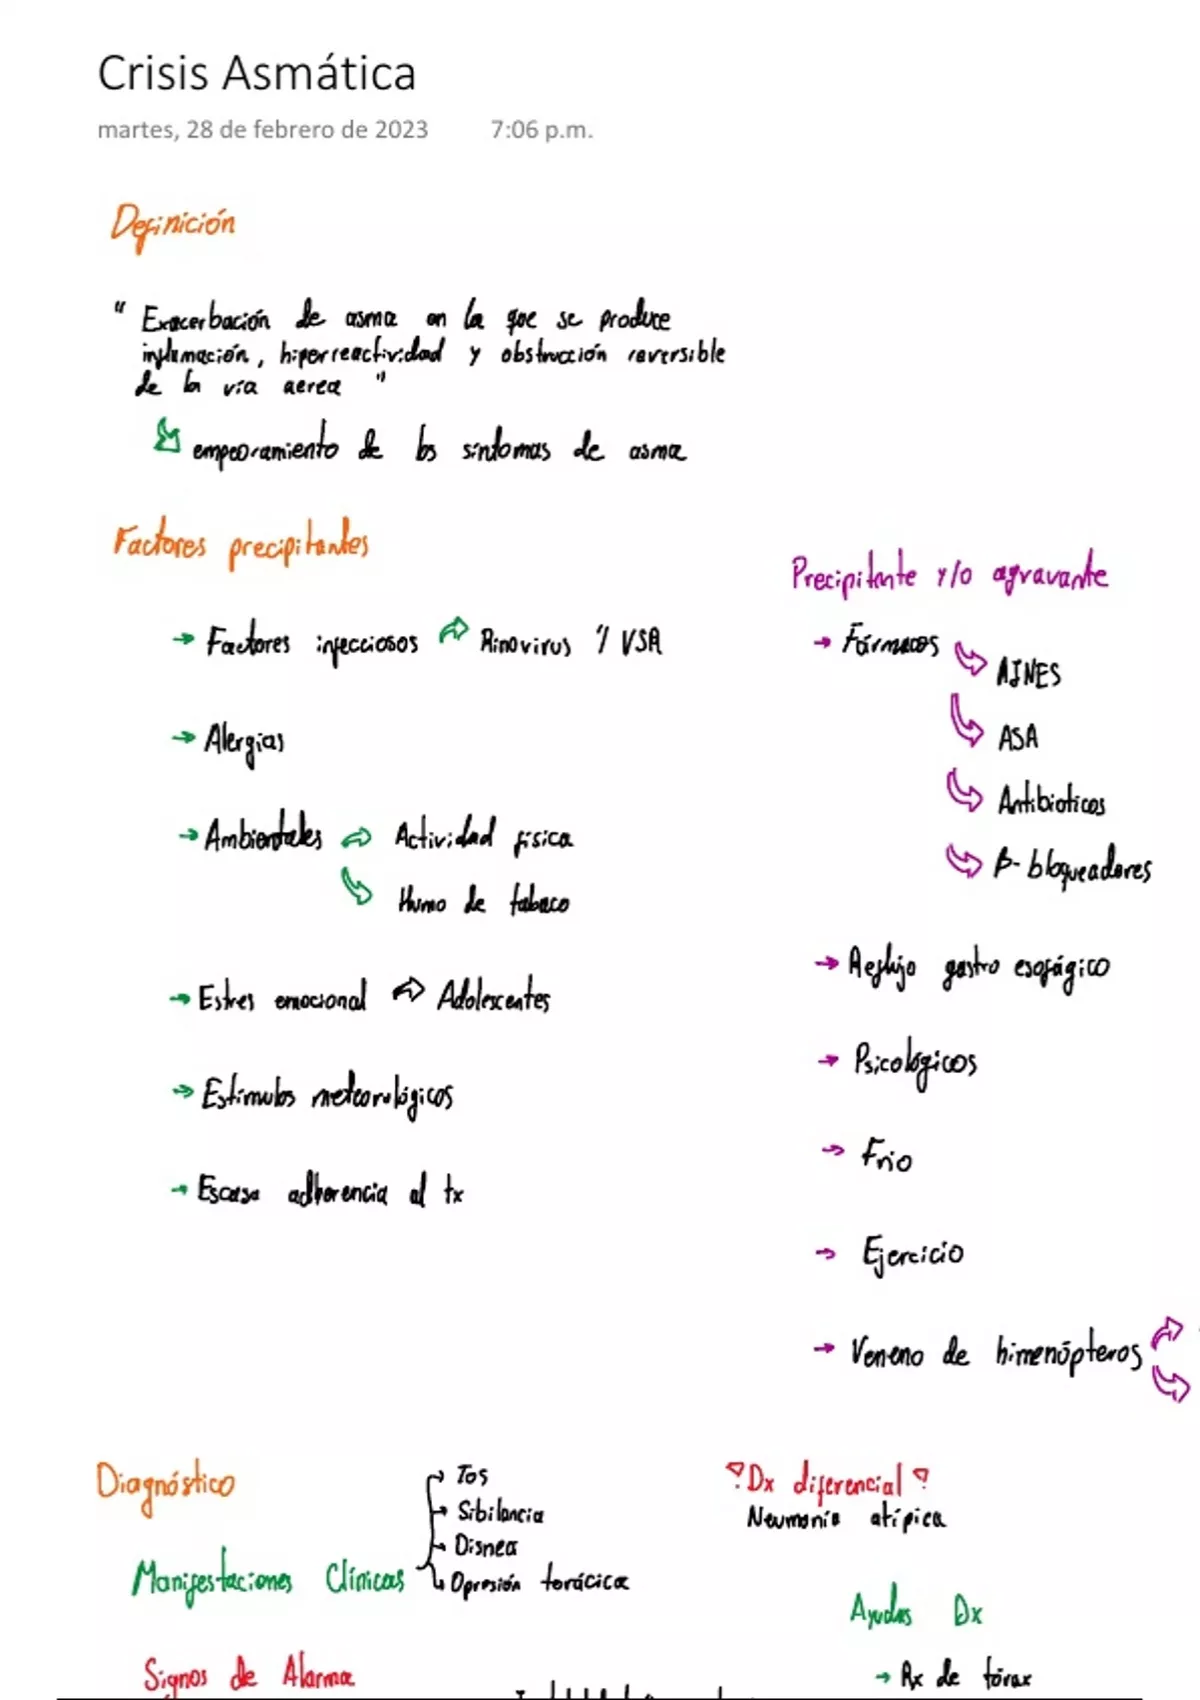 Crisis Asmática
martes, 28 de febrero de 2023 7:06 p.m.
Definición
" Exacerbación de asma en la que se produce
inflamación, hiperreactividad y obstrucción reversible
de la vía aerea "
empeoramiento de los síntomas de asma
Factores precipitantes
→ Factores infecciosos Rinovirus y VSR
→ Alergias
→ Ambientales Actividad física
Humo de tabaco
→ Estres emocional Adolescentes
→ Estímulos meteorológicos
→ Escasa adherencia al tx
Precipitante y/o agravante
→ Fármacos AINES
ASA
Antibioticos
β-bloqueadores
→ Reflujo gastro esofágico
→ Psicológicos
→ Frio
→ Ejercicio
→ Veneno de himenópteros
Diagnóstico
Manifestaciones Clínicas
Tos
Sibilancia
Disnea
Opresión torácica
Signos de Alarma
Dx diferencial
Neumonía atípica
Ayudas Dx
→ Rx de tórax